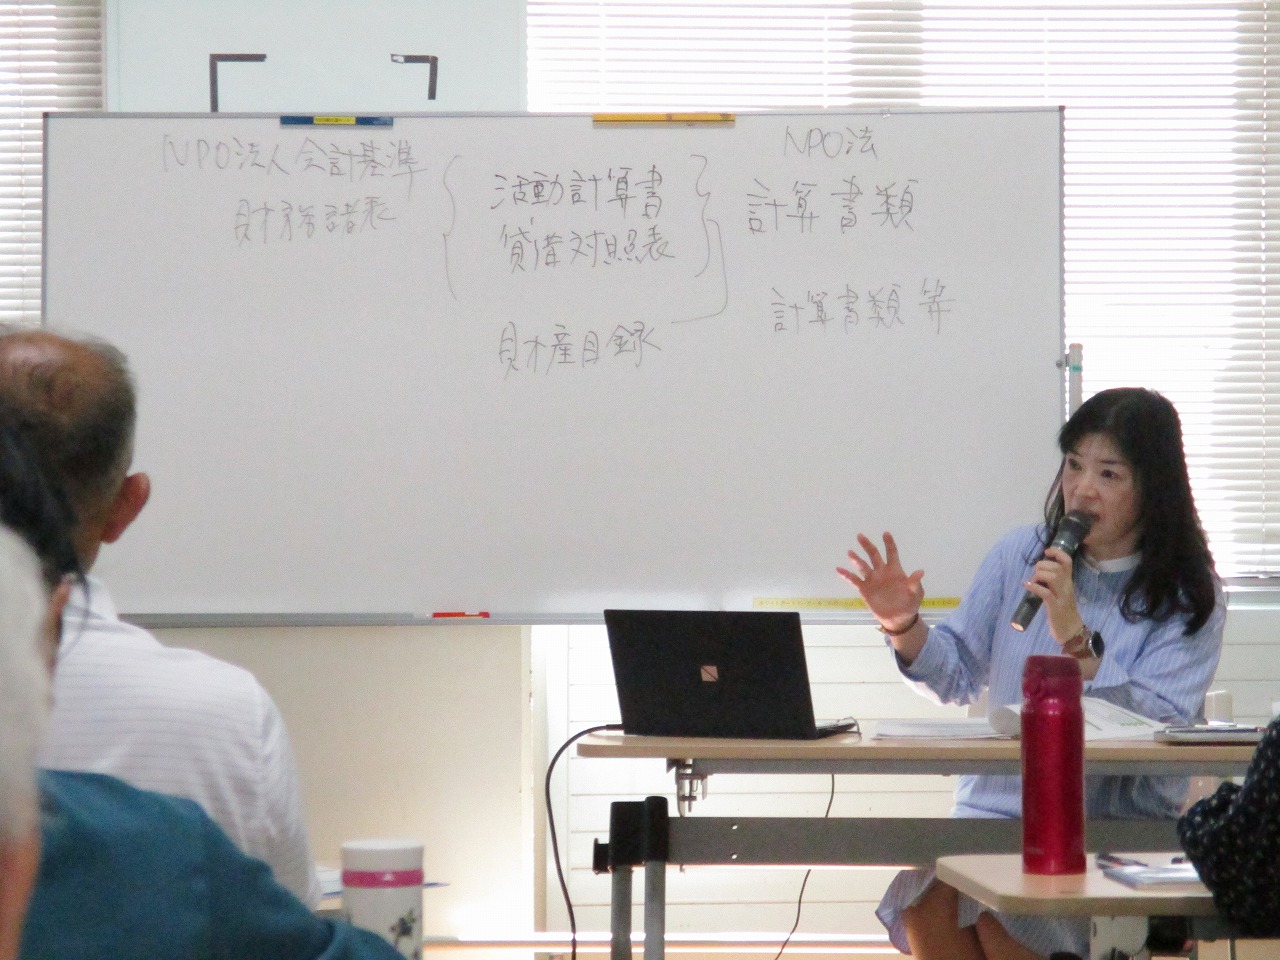 NPO法人会計基準
財務諸表
活動計算書
貸借対照表
財産目録
NPO法
計算書類
計算書類 等